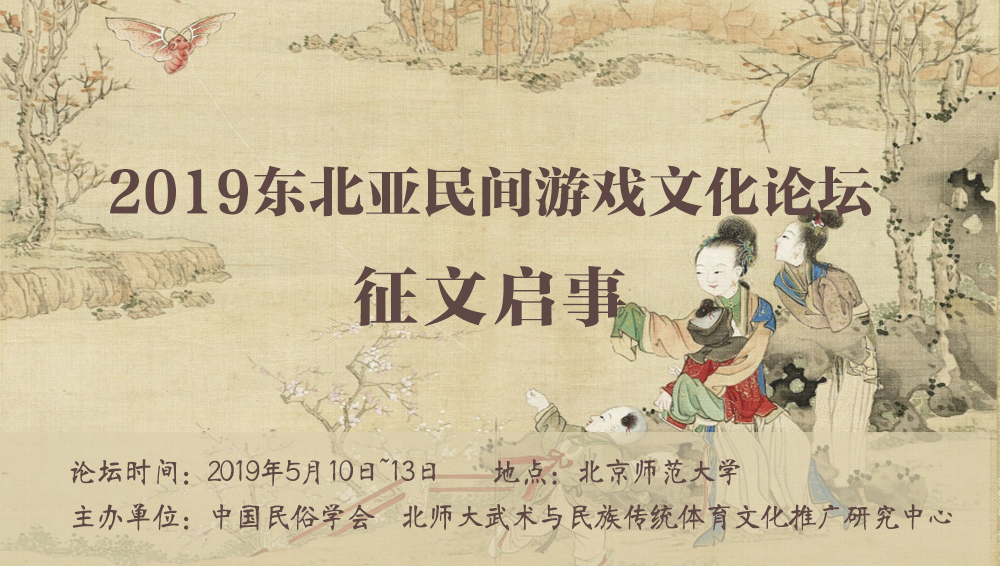 2019东北亚民间游戏文化论坛
征文启事
论坛时间：2019年5月10日~13日 地点：北京师范大学
主办单位：中国民俗学会 北师大武术与民族传统体育文化推广研究中心